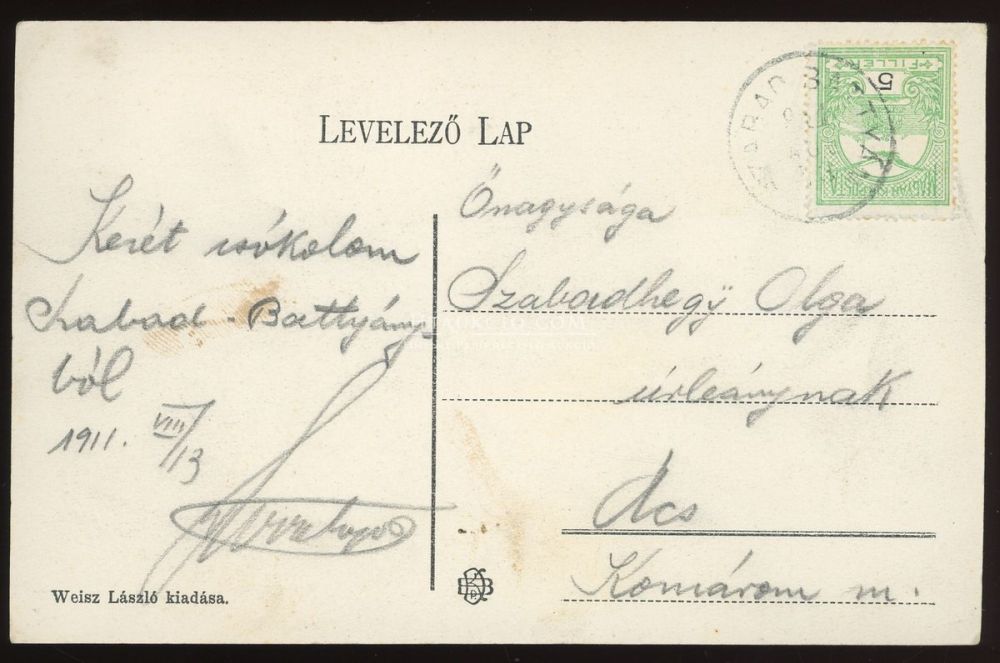 LEVELEZŐ LAP
5
FILLÉR
MAGYAR KIR. POSTA
Kezét csókolom
Szabad-Battyány-
ból
1911. VIII/13
Önagysága
Szabadhegÿ Olga
úrleánynak
Ács
Komárom m.
Weisz László kiadása.